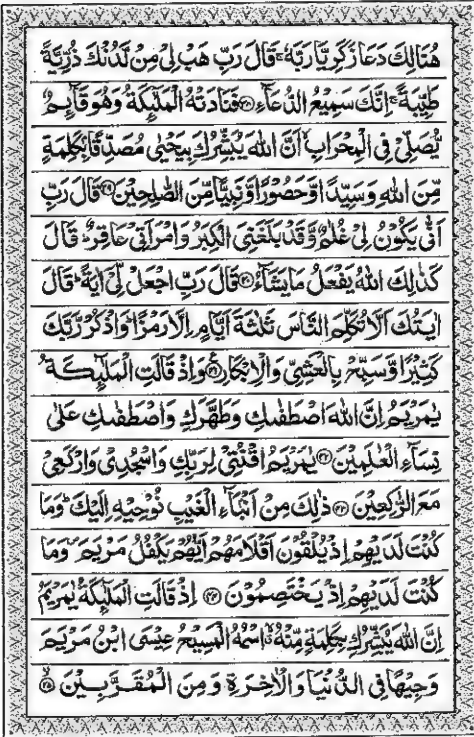 هُنَالِكَ دَعَا زَكَرِيَّا رَبَّهٗ ۚ قَالَ رَبِّ هَبْ لِیْ مِنْ لَّدُنْكَ ذُرِّیَّةً
طَیِّبَةً ۚ اِنَّكَ سَمِیْعُ الدُّعَآءِ ﴿۳۸﴾ فَنَادَتْهُ الْمَلٰٓىِٕكَةُ وَهُوَ قَآىِٕمٌ
یُّصَلِّیْ فِی الْمِحْرَابِ ۙ اَنَّ اللّٰهَ یُبَشِّرُكَ بِیَحْیٰی مُصَدِّقًۢا بِكَلِمَةٍ
مِّنَ اللّٰهِ وَسَیِّدًا وَّحَصُوْرًا وَّنَبِیًّا مِّنَ الصّٰلِحِیْنَ ﴿۳۹﴾ قَالَ رَبِّ
اَنّٰی یَكُوْنُ لِیْ غُلٰمٌ وَّقَدْ بَلَغَنِیَ الْكِبَرُ وَامْرَاَتِیْ عَاقِرٌ ؕ قَالَ
كَذٰلِكَ اللّٰهُ یَفْعَلُ مَا یَشَآءُ ﴿۴۰﴾ قَالَ رَبِّ اجْعَلْ لِّیْۤ اٰیَةً ؕ قَالَ
اٰیَتُكَ اَلَّا تُكَلِّمَ النَّاسَ ثَلٰثَةَ اَیَّامٍ اِلَّا رَمْزًا ؕ وَاذْكُرْ رَّبَّكَ
كَثِیْرًا وَّسَبِّحْ بِالْعَشِیِّ وَالْاِبْكَارِ ﴿۴۱﴾ وَاِذْ قَالَتِ الْمَلٰٓىِٕكَةُ
یٰمَرْیَمُ اِنَّ اللّٰهَ اصْطَفٰىكِ وَطَهَّرَكِ وَاصْطَفٰىكِ عَلٰی
نِسَآءِ الْعٰلَمِیْنَ ﴿۴۲﴾ یٰمَرْیَمُ اقْنُتِیْ لِرَبِّكِ وَاسْجُدِیْ وَارْكَعِیْ
مَعَ الرّٰكِعِیْنَ ﴿۴۳﴾ ذٰلِكَ مِنْ اَنْۢبَآءِ الْغَیْبِ نُوْحِیْهِ اِلَیْكَ ؕ وَمَا
كُنْتَ لَدَیْهِمْ اِذْ یُلْقُوْنَ اَقْلَامَهُمْ اَیُّهُمْ یَكْفُلُ مَرْیَمَ ۪ وَمَا
كُنْتَ لَدَیْهِمْ اِذْ یَخْتَصِمُوْنَ ﴿۴۴﴾ اِذْ قَالَتِ الْمَلٰٓىِٕكَةُ یٰمَرْیَمُ
اِنَّ اللّٰهَ یُبَشِّرُكِ بِكَلِمَةٍ مِّنْهُ ۖۗ اسْمُهُ الْمَسِیْحُ عِیْسَی ابْنُ مَرْیَمَ
وَجِیْهًا فِی الدُّنْیَا وَالْاٰخِرَةِ وَمِنَ الْمُقَرَّبِیْنَ ﴿۴۵﴾